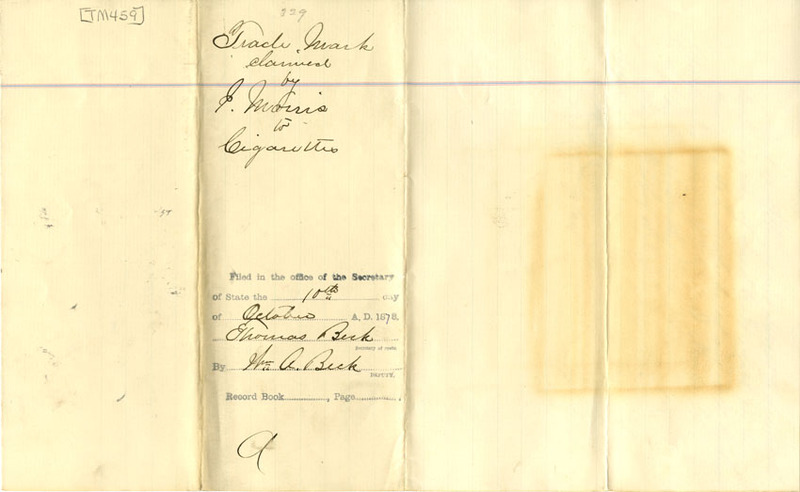 [TM459]
329
Trade Mark
claimed
by
P. Morris
to
Cigarettes
Filed in the office of the Secretary
of State the 10th day
of October A. D. 1878.
Thomas Beck
Secretary of State
By Wm A. Beck
DEPUTY.
Record Book, Page
a